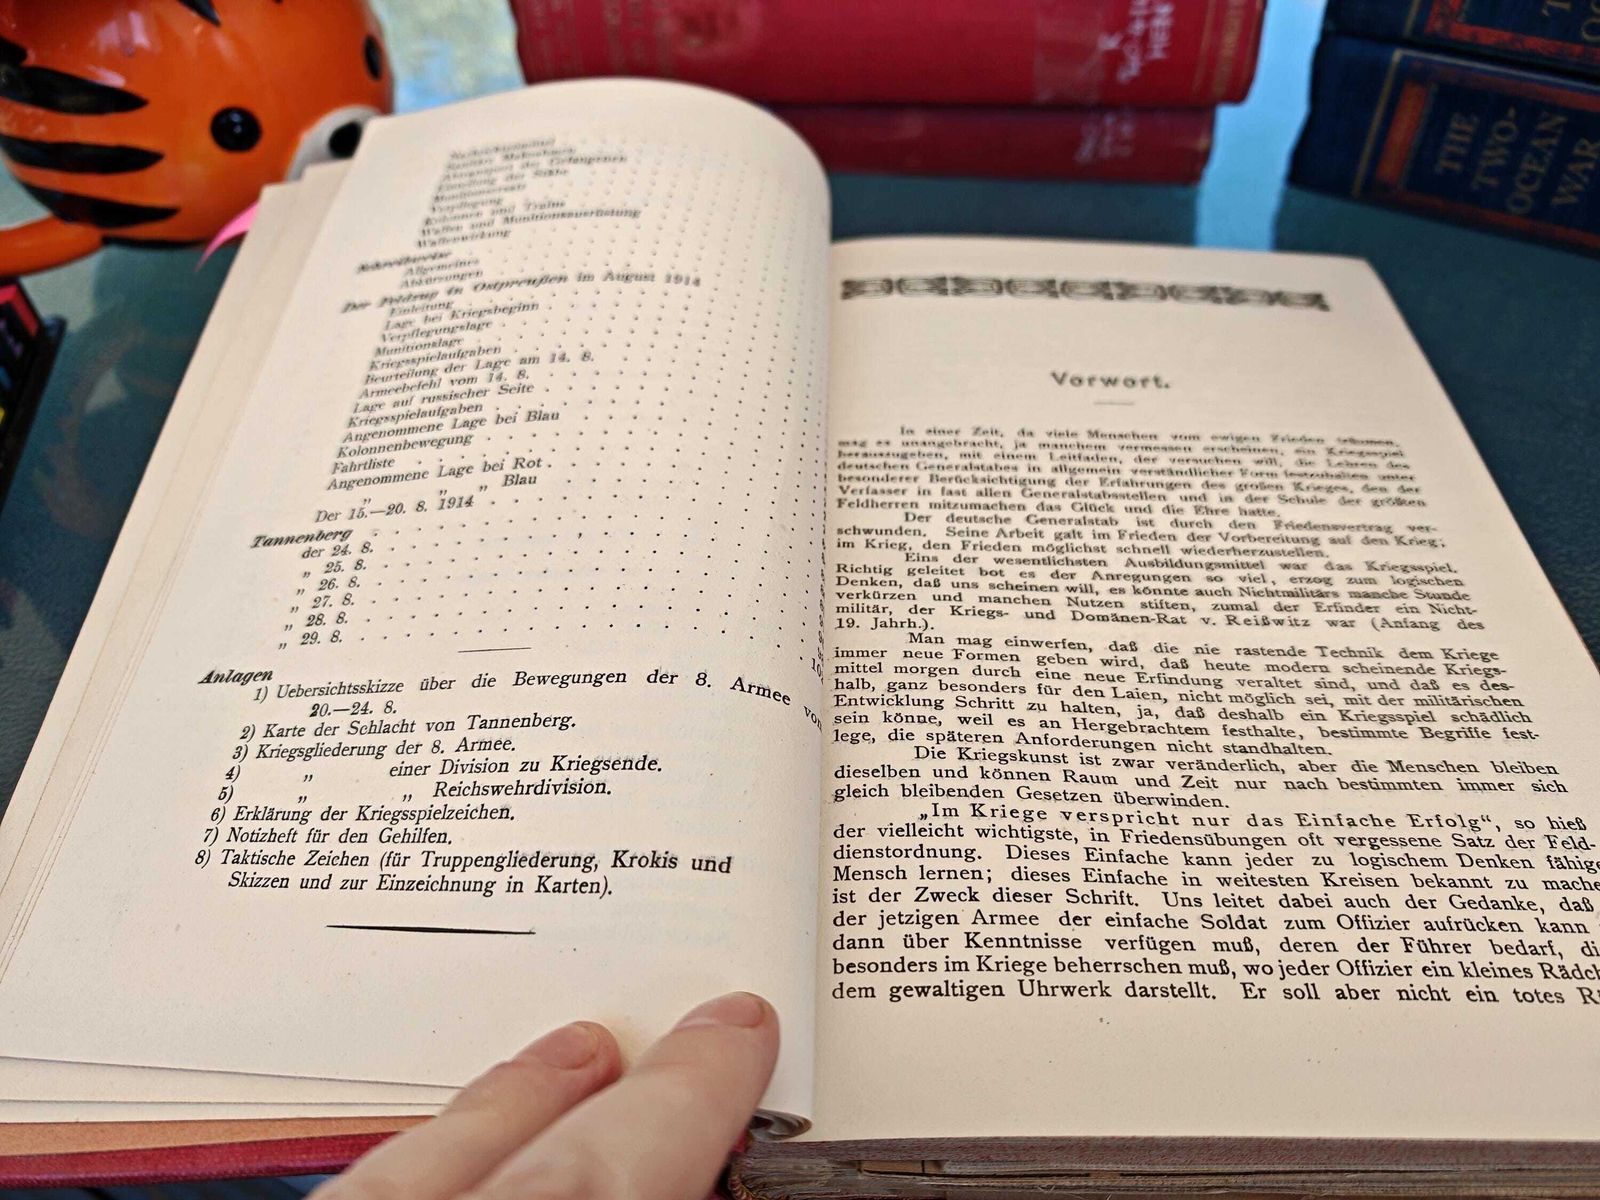 Nachrichtenmittel
Sanitäre Maßnahmen
Abtransport der Gefangenen
Einteilung der Stäbe
Munitionsersatz
Verpflegung
Kolonnen und Trains
Waffen und Munitionsausrüstung
Waffenwirkung
Schreibweise
Allgemeines
Abkürzungen
Der Feldzug in Ostpreußen im August 1914
Einleitung
Lage bei Kriegsbeginn
Verpflegungslage
Munitionslage
Kriegsspielaufgaben
Beurteilung der Lage am 14. 8.
Armeebefehl vom 14. 8.
Lage auf russischer Seite
Kriegsspielaufgaben
Angenommene Lage bei Blau
Kolonnenbewegung
Fahrtliste
Angenommene Lage bei Rot
„ „ „ Blau
Der 15.—20. 8. 1914
Tannenberg
der 24. 8.
„ 25. 8.
„ 26. 8.
„ 27. 8.
„ 28. 8.
„ 29. 8.
Anlagen
1) Uebersichtsskizze über die Bewegungen der 8. Armee von
20.—24. 8.
2) Karte der Schlacht von Tannenberg.
3) Kriegsgliederung der 8. Armee.
4) „ einer Division zu Kriegsende.
5) „ „ Reichswehrdivision.
6) Erklärung der Kriegsspielzeichen.
7) Notizheft für den Gehilfen.
8) Taktische Zeichen (für Truppengliederung, Krokis und
Skizzen und zur Einzeichnung in Karten).
Vorwort.
In einer Zeit, da viele Menschen vom ewigen Frieden träumen,
mag es unangebracht, ja manchem vermessen erscheinen, ein Kriegsspiel
herauszugeben, mit einem Leitfaden, der versuchen will, die Lehren des
deutschen Generalstabes in allgemein verständlicher Form festzuhalten unter
besonderer Berücksichtigung der Erfahrungen des großen Krieges, den der
Verfasser in fast allen Generalstabsstellen und in der Schule der größten
Feldherren mitzumachen das Glück und die Ehre hatte.
Der deutsche Generalstab ist durch den Friedensvertrag ver-
schwunden. Seine Arbeit galt im Frieden der Vorbereitung auf den Krieg;
im Krieg, den Frieden möglichst schnell wiederherzustellen.
Eins der wesentlichsten Ausbildungsmittel war das Kriegsspiel.
Richtig geleitet bot es der Anregungen so viel, erzog zum logischen
Denken, daß uns scheinen will, es könnte auch Nichtmilitärs manche Stunde
verkürzen und manchen Nutzen stiften, zumal der Erfinder ein Nicht-
militär, der Kriegs- und Domänen-Rat v. Reißwitz war (Anfang des
19. Jahrh.).
Man mag einwerfen, daß die nie rastende Technik dem Kriege
immer neue Formen geben wird, daß heute modern scheinende Kriegs-
mittel morgen durch eine neue Erfindung veraltet sind, und daß es des-
halb, ganz besonders für den Laien, nicht möglich sei, mit der militärischen
Entwicklung Schritt zu halten, ja, daß deshalb ein Kriegsspiel schädlich
sein könne, weil es an Hergebrachtem festhalte, bestimmte Begriffe fest-
lege, die späteren Anforderungen nicht standhalten.
Die Kriegskunst ist zwar veränderlich, aber die Menschen bleiben
dieselben und können Raum und Zeit nur nach bestimmten immer sich
gleich bleibenden Gesetzen überwinden.
„Im Kriege verspricht nur das Einfache Erfolg“, so hieß
der vielleicht wichtigste, in Friedensübungen oft vergessene Satz der Feld-
dienstordnung. Dieses Einfache kann jeder zu logischem Denken fähige
Mensch lernen; dieses Einfache in weitesten Kreisen bekannt zu mache
ist der Zweck dieser Schrift. Uns leitet dabei auch der Gedanke, daß
der jetzigen Armee der einfache Soldat zum Offizier aufrücken kann
dann über Kenntnisse verfügen muß, deren der Führer bedarf, di
besonders im Kriege beherrschen muß, wo jeder Offizier ein kleines Rädch
dem gewaltigen Uhrwerk darstellt. Er soll aber nicht ein totes R
THE
TWO-
OCEAN
WAR